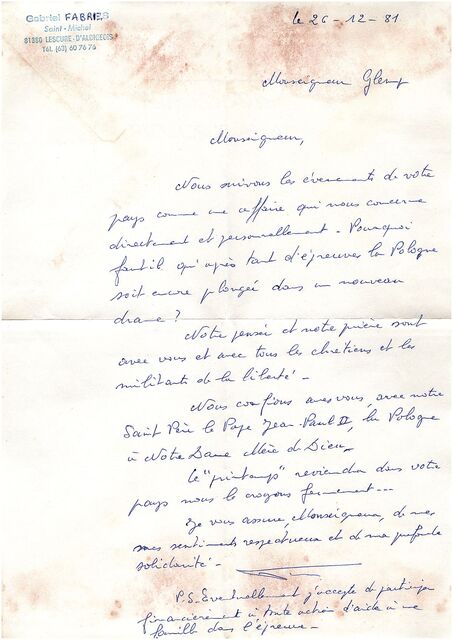 Gabriel FABRIES
Saint-Michel
81380 LESCURE-D'ALBIGEOIS
Tél. (63) 60 76 76
le 26-12-81
Monseigneur Glemp
Monseigneur,
Nous suivons les évènements de votre
pays comme une affaire qui nous concerne
directement et personnellement. Pourquoi
faut-il qu'après tant d'épreuves la Pologne
soit encore plongée dans un nouveau
drame ?
Notre pensée et notre prière sont
avec vous et avec tous les chrétiens et les
militants de la liberté.
Nous confions avec vous, avec notre
Saint Père le Pape Jean-Paul II, la Pologne
à Notre Dame Mère de Dieu.
Le "printemps" reviendra dans votre
pays nous le croyons fermement...
Je vous assure, Monseigneur, de mes
sentiments respectueux et de ma profonde
solidarité.
P.S. Eventuellement j'accepte de participer
financièrement à toute action d'aide à une
famille dans l'épreuve.